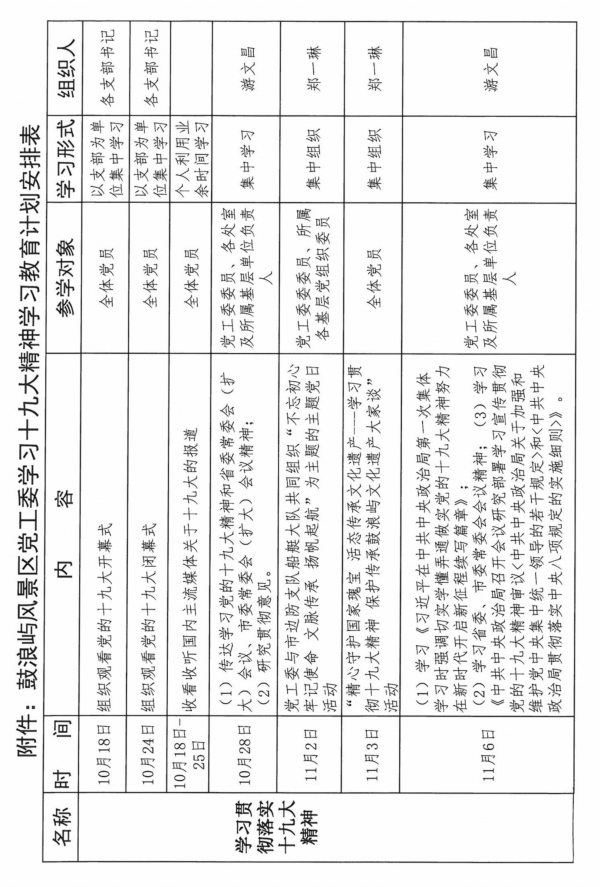 附件：鼓浪屿风景区党工委学习十九大精神学习教育计划安排表
名称
时 间
内 容
参学对象
学习形式
组织人
学习贯
彻落实
十九大
精神
10月18日
组织观看党的十九大开幕式
全体党员
以支部为单
位集中学习
各支部书记
10月24日
组织观看党的十九大闭幕式
全体党员
以支部为单
位集中学习
各支部书记
10月18日-
25日
收看收听国内主流媒体关于十九大的报道
全体党员
个人利用业
余时间学习
10月28日
（1）传达学习党的十九大精神和省委常委会（扩
大）会议、市委常委会（扩大）会议精神；
（2）研究贯彻意见。
党工委委员、各处室
及所属基层单位负责
人
集中学习
游文昌
11月2日
党工委与市边防支队船艇大队共同组织“不忘初心
牢记使命 文脉传承 扬帆起航”为主题的主题党日
活动
党工委委员、所属
各基层党组织委员
集中组织
郑一琳
11月3日
“精心守护国家瑰宝 活态传承文化遗产——学习贯
彻十九大精神 保护传承鼓浪屿文化遗产大家谈”
活动
全体党员
集中组织
郑一琳
11月6日
（1）学习《习近平在中共中央政治局第一次集体
学习时强调切实学懂弄通做实党的十九大精神努力
在新时代开启新征程续写篇章》；
（2）学习省委、市委常委会会议精神；（3）学习
《中共中央政治局召开会议研究部署学习宣传贯彻
党的十九大精神审议<中共中央政治局关于加强和
维护党中央集中统一领导的若干规定>和<中共中央
政治局贯彻落实中央八项规定的实施细则>》。
党工委委员、各处室
及所属基层单位负责
人
集中学习
游文昌